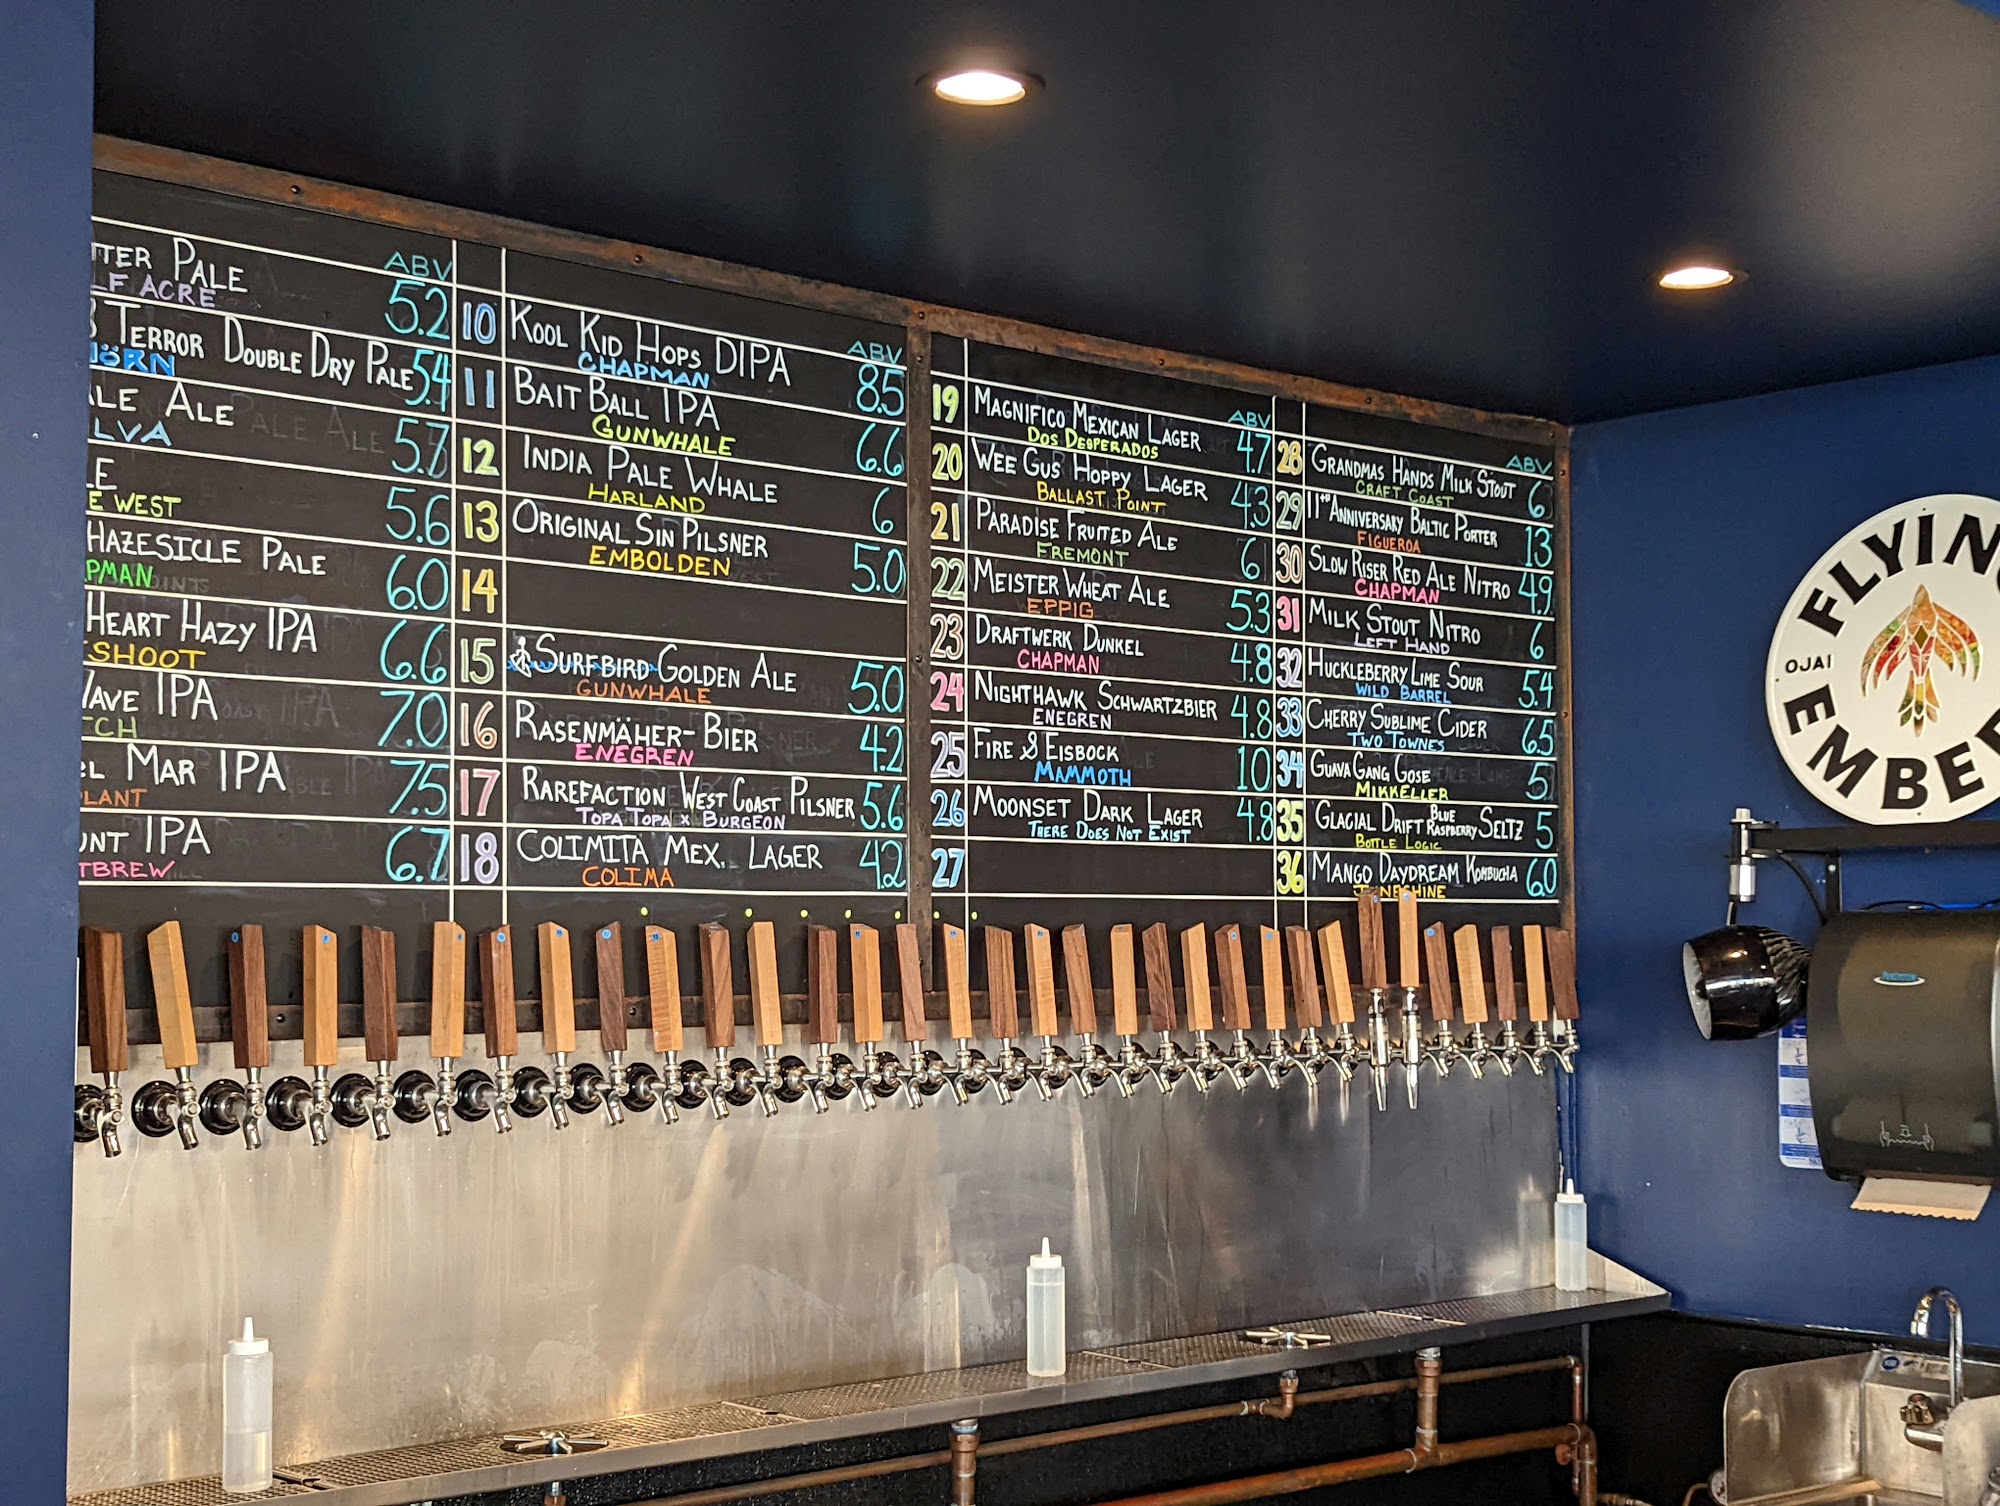 ABV
TTER PALE 5.2
LF ACRE
TERROR DOUBLE DRY PALE 5.4
JÖRN
ALE ALE 5.7
LVA
LE 5.6
E WEST
HAZESICLE PALE 6.0
PMAN
HEART HAZY IPA 6.6
SHOOT
WAVE IPA 7.0
TCH
EL MAR IPA 7.5
LANT
UNT IPA 6.7
TBREW
ABV
10 KOOL KID HOPS DIPA 8.5
CHAPMAN
11 BAIT BALL IPA 6.6
GUNWHALE
12 INDIA PALE WHALE 6
HARLAND
13 ORIGINAL SIN PILSNER 5.0
EMBOLDEN
14
15 SURFBIRD GOLDEN ALE 5.0
GUNWHALE
16 RASENMÄHER-BIER 4.2
ENEGREN
17 RAREFACTION WEST COAST PILSNER 5.6
TOPA TOPA X BURGEON
18 COLIMITA MEX. LAGER 4.2
COLIMA
ABV
19 MAGNIFICO MEXICAN LAGER 4.7
DOS DESPERADOS
20 WEE GUS HOPPY LAGER 4.3
BALLAST POINT
21 PARADISE FRUITED ALE 6
FREMONT
22 MEISTER WHEAT ALE 5.3
EPPIG
23 DRAFTWERK DUNKEL 4.8
CHAPMAN
24 NIGHTHAWK SCHWARTZBIER 4.8
ENEGREN
25 FIRE & EISBOCK 10
MAMMOTH
26 MOONSET DARK LAGER 4.8
THERE DOES NOT EXIST
27
ABV
28 GRANDMAS HANDS MILK STOUT 6
CRAFT COAST
29 11TH ANNIVERSARY BALTIC PORTER 13
FIGUEROA
30 SLOW RISER RED ALE NITRO 4.9
CHAPMAN
31 MILK STOUT NITRO 6
LEFT HAND
32 HUCKLEBERRY LIME SOUR 5.4
WILD BARREL
33 CHERRY SUBLIME CIDER 6.5
TWO TOWNES
34 GUAVA GANG GOSE 5
MIKKELLER
35 GLACIAL DRIFT BLUE RASPBERRY SELTZ 5
BOTTLE LOGIC
36 MANGO DAYDREAM KOMBUCHA 6.0
JUNESHINE
FLYING
OJAI
EMBE